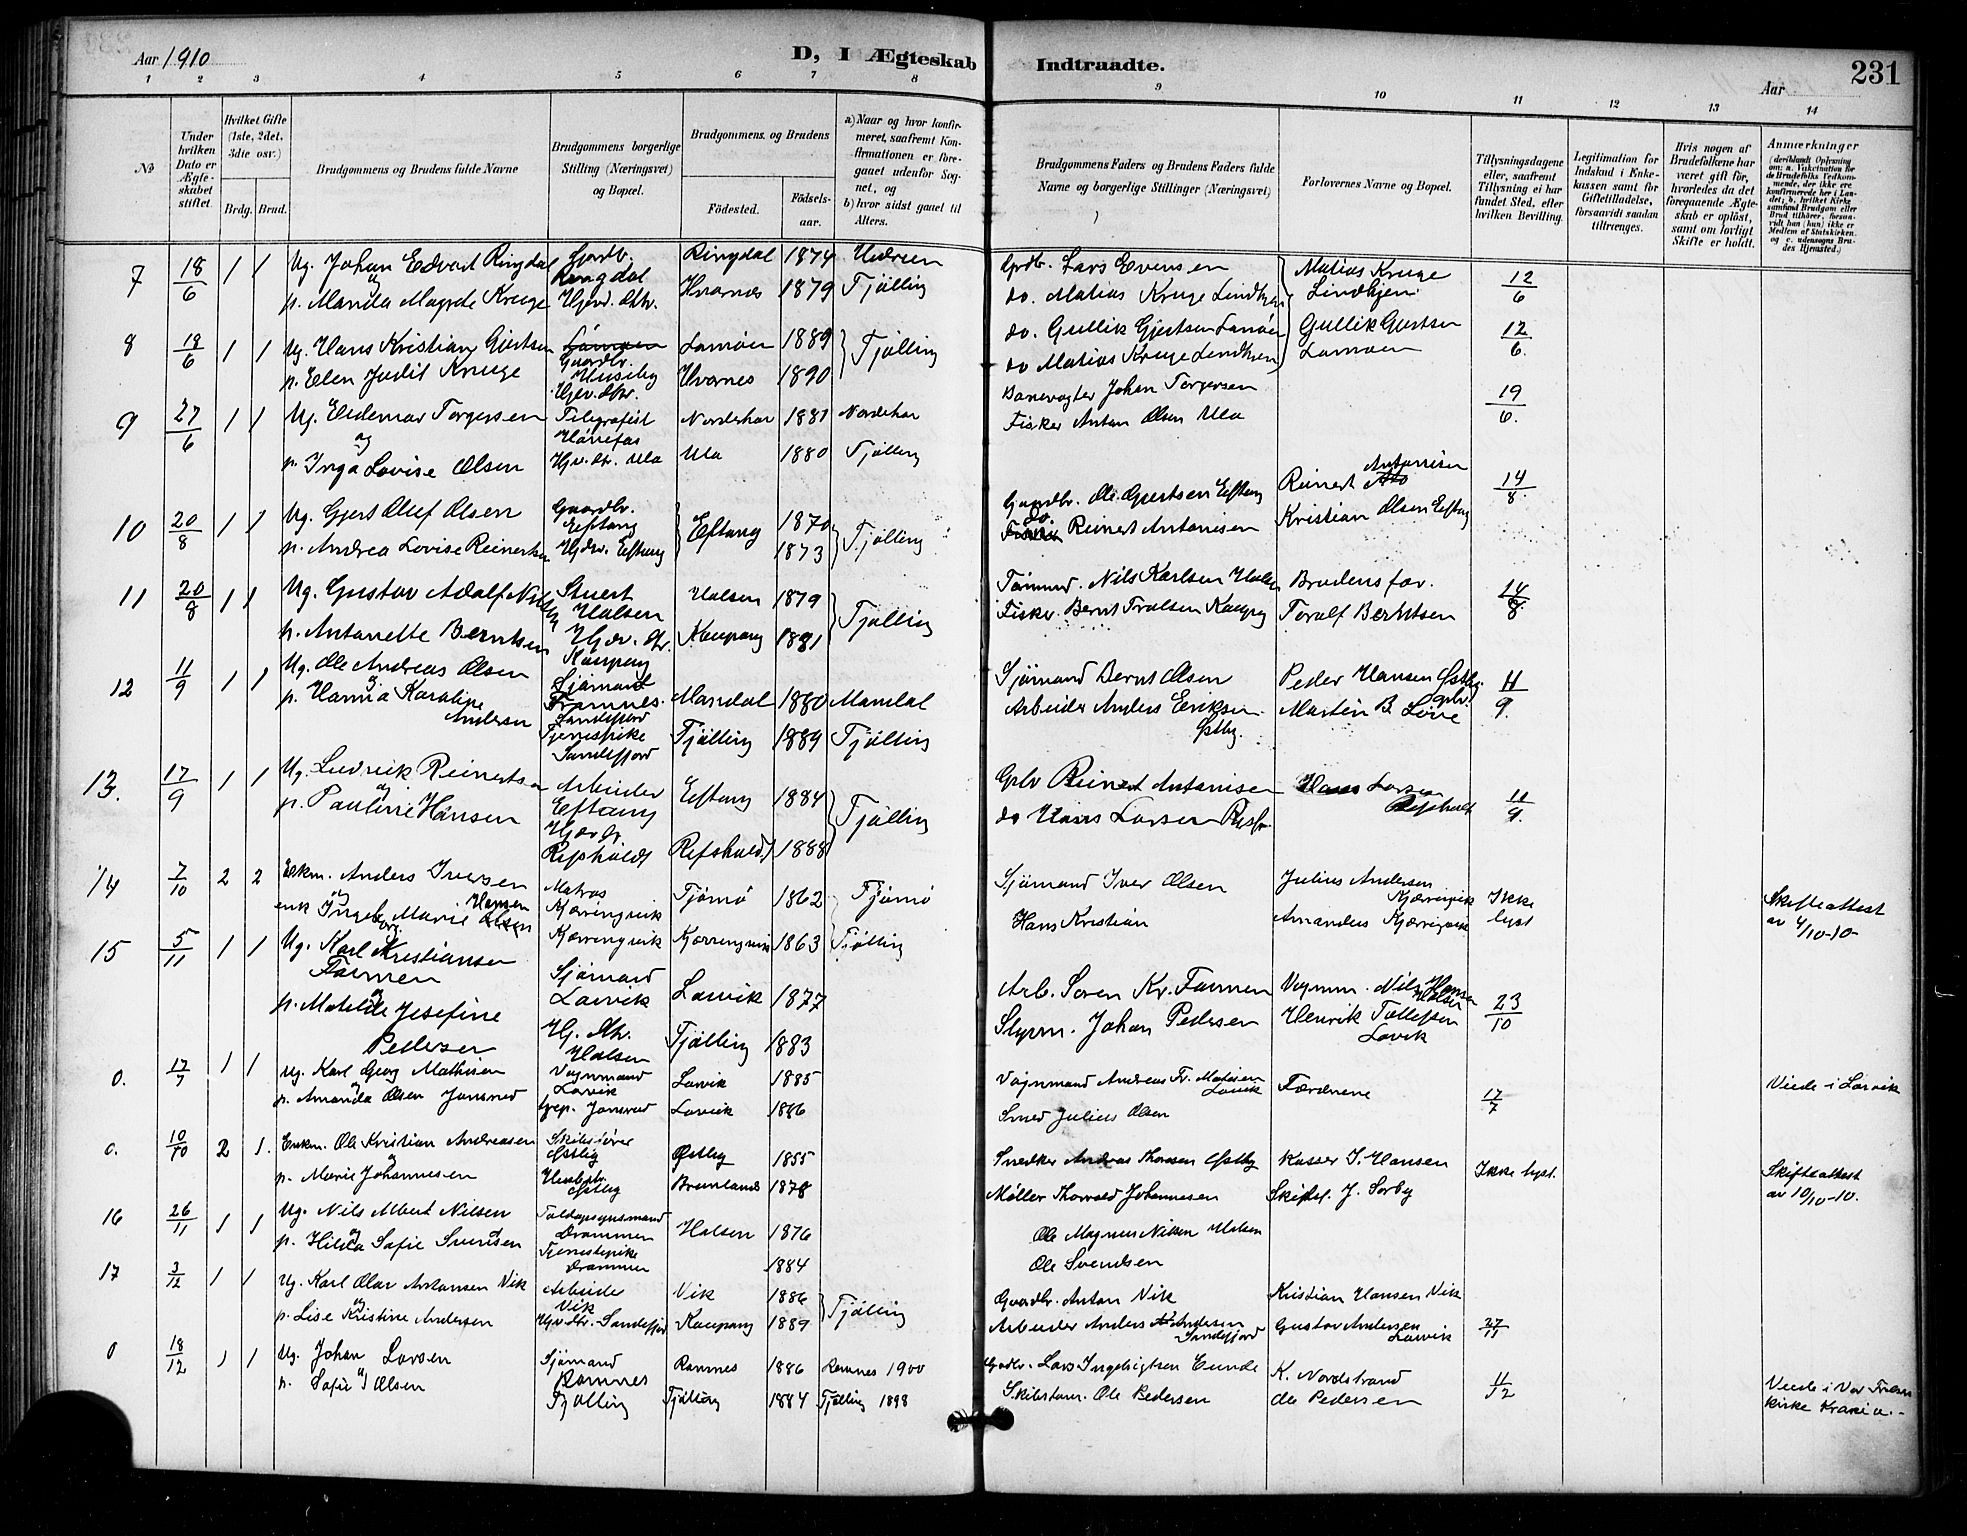 Aar 1910
D, I Ægteskab Indtraadte.
Aar
231
1 2 3 4 5 6 7 8 9 10 11 12 13 14
No
Under hvilken Dato er Ægteskabet stiftet.
Hvilket Gifte (1ste, 2det, 3die osv.)
Brdg. Brud.
Brudgommens og Brudens fulde Navne
Brudgommens borgerlige Stilling (Næringsvei) og Bopæl.
Brudgommens. og Brudens
Fødested.
Fødselsaar.
a) Naar og hvor konfirmeret, saafremt Konfirmationen er foregaaet udenfor Sognet, og
b) hvor sidst gaaet til Alters.
Brudgommens Faders og Brudens Faders fulde Navne og borgerlige Stillinger (Næringsvei)
Forlovernes Navne og Bopæl.
Tillysningsdagene eller, saafremt Tillysning ei har fundet Sted, efter hvilken Bevilling.
Legitimation for Indskud i Enkekassen samt for Giftetilladelse, forsaavidt saadan tiltrænges.
Hvis nogen af Brudefolkene har været gift før, hvorledes da det foregaaende Ægteskab er opløst, samt om lovligt Skifte er holdt.
Anmærkninger
7 18/6 1 1 Ug. Johan Edvard Ringdal Gordb. Ringdal 1874 Hedrum Grdbr. Lars Evensen Matias Kruge 12/6
og
p. Manda Magrete Kruge Hjev. dtr. Hvarnes 1879 Tjølling do. Matias Kruge Lindhjem Lindhjem
8 18/6 1 1 Ug. Hans Kristian Gjertsen Gaardbr. Huseby Lamøen 1889 Tjølling do. Gullik Gjertsen Lamøen Gullik Gjertsen 12/6.
p. Elen Judit Kruge Hjev. dtr. Hvarnes 1890 do Matias Kruge Lindhjem Lamøen
9 27/6 1 1 Ug. Eldemar Torgersen Telegrafist Hønefos Norderhov 1881 Norderhov Banevogter Johan Torgersen 19/6.
og
p. Inga Lovise Olsen Hjv. dtr. Ula Ula 1880 Tjølling Fisker Anton Olsen Ula
10 20/8 1 1 Ug. Gjert Oluf Olsen Gaardbr. Eftang Eftang 1870 Tjølling Gaardbr. Ole Gjertsen Eftang Reinert Antonisen 14/8.
p. Andrea Lovise Reinertsen Hjev. Eftang 1873 do. Reinert Antonisen Kristian Olsen Eftang
11 20/8 1 1 Ug. Gustav Adolf Nilsen Stuert Halsen Halsen 1879 Tjølling Tømmd. Nils Karlsen Halsen Brudens far. 14/8
p. Antonette Berntsen Hjev. dtr. Kaupang Kaupang 1881 Fisker Bernt Tralsen Kaupang Toralf Berntsen
12 11/9 1 1 Ug. Ole Andreas Olsen Sjømand Framnes. Sandefjord Mandal 1880 Mandal Sjømand Bernt Olsen Peder Hansen Østby. 11/9.
og
p. Hanna Karoline Andersen Tjenestepike Sandefjord Tjølling 1884 Tjølling Arbeider Anders Eriksen Østby. Martin B. Løve
13. 17/9 1 1 Ug. Ludvik Reinertsen Arbeider Eftang Eftang 1884 Tjølling Grbr Reinert Antonisen Hans Larsen Refsholt 11/9.
og
p. Pauline Hansen Refsholdt Refsholdt 1888 do Hans Larsen
14 7/10 2 2 Ekm. Anders Iversen Matros Kjærringvik Tjømø 1862 Tjømø Sjømand Iver Olsen Julius Andersen Kjærringvik Ikke lyst Skifteattest av 4/10-10-
og
enk Ingeborg Marie Hansen Kjærringvik Kjærringvik 1863 Tjølling Hans Kristian Amandus Kjærringvik
15 5/11 1 1 Ug. Karl Kristiansen Farmen Sjømand Larvik Larvik 1877 Arb. Søren Kr. Farmen Vognm. Nils Hansen Halsen 23/10
og
p. Matilde Josefine Pedersen Hj. dtr. Halsen Tjølling 1883 Styrm. Johan Pedersen Henrik Tollefsen Larvik
0. 17/7 1 1 Ug. Karl Georg Mathisen Vognmand Larvik Larvik 1885 Vognmand Andreas Fr. Matisen Larvik Fædrene 17/7 Viede i Larvik
p. Amanda Olsen Jonsrud Jonsrud Larvik 1886 Smed Julius Olsen
0. 10/10 2 1. Enkm. Ole Kristian Andreasen Skibsfører Østby Østby 1855 Snedker Andreas Thoresen Østby Kasser J. Hansen Ikke lyst. Skifteattest av 10/10-10.
og
p. Marie Johannesen Østby Brunlanes 1878 Møller Thorvald Johannesen Skibsf. J. Sørby
16 26/11 1 1 Ug. Nils Albert Nilsen Toldopsynsmand Drammen Halsen 1876 Ole Magnus Nilsen Halsen
og
p. Hilda Sofie Svendsen Tjenestepike Drammen 1884 Ole Svendsen
17 3/12 1 1 Ug. Karl Olav Antonsen Vik Arbeider Vik Vik 1886 Tjølling Gaardbr. Anton Vik Kristian Hansen Vik
og
p. Lise Kristine Andersen Hjv. dtr. Sandefjord Kaupang 1889 Arbeider Anders Andersen Sandefjord Gustav Andersen Larvik 27/11
0 18/12 1 1 Ug. Johan Larsen Sjømand Ramnes Ramnes 1886 Ramnes 1900 Grdbr. Lars Ingebrigtsen Eunde K. Nordstrand 11/12 Viede i Vor Frelsers kirke Krania.-
og
p. Sofie Olsen Tjølling Tjølling 1884 Tjølling 1898 Skibstøm. Ole Pedersen Ole Pedersen